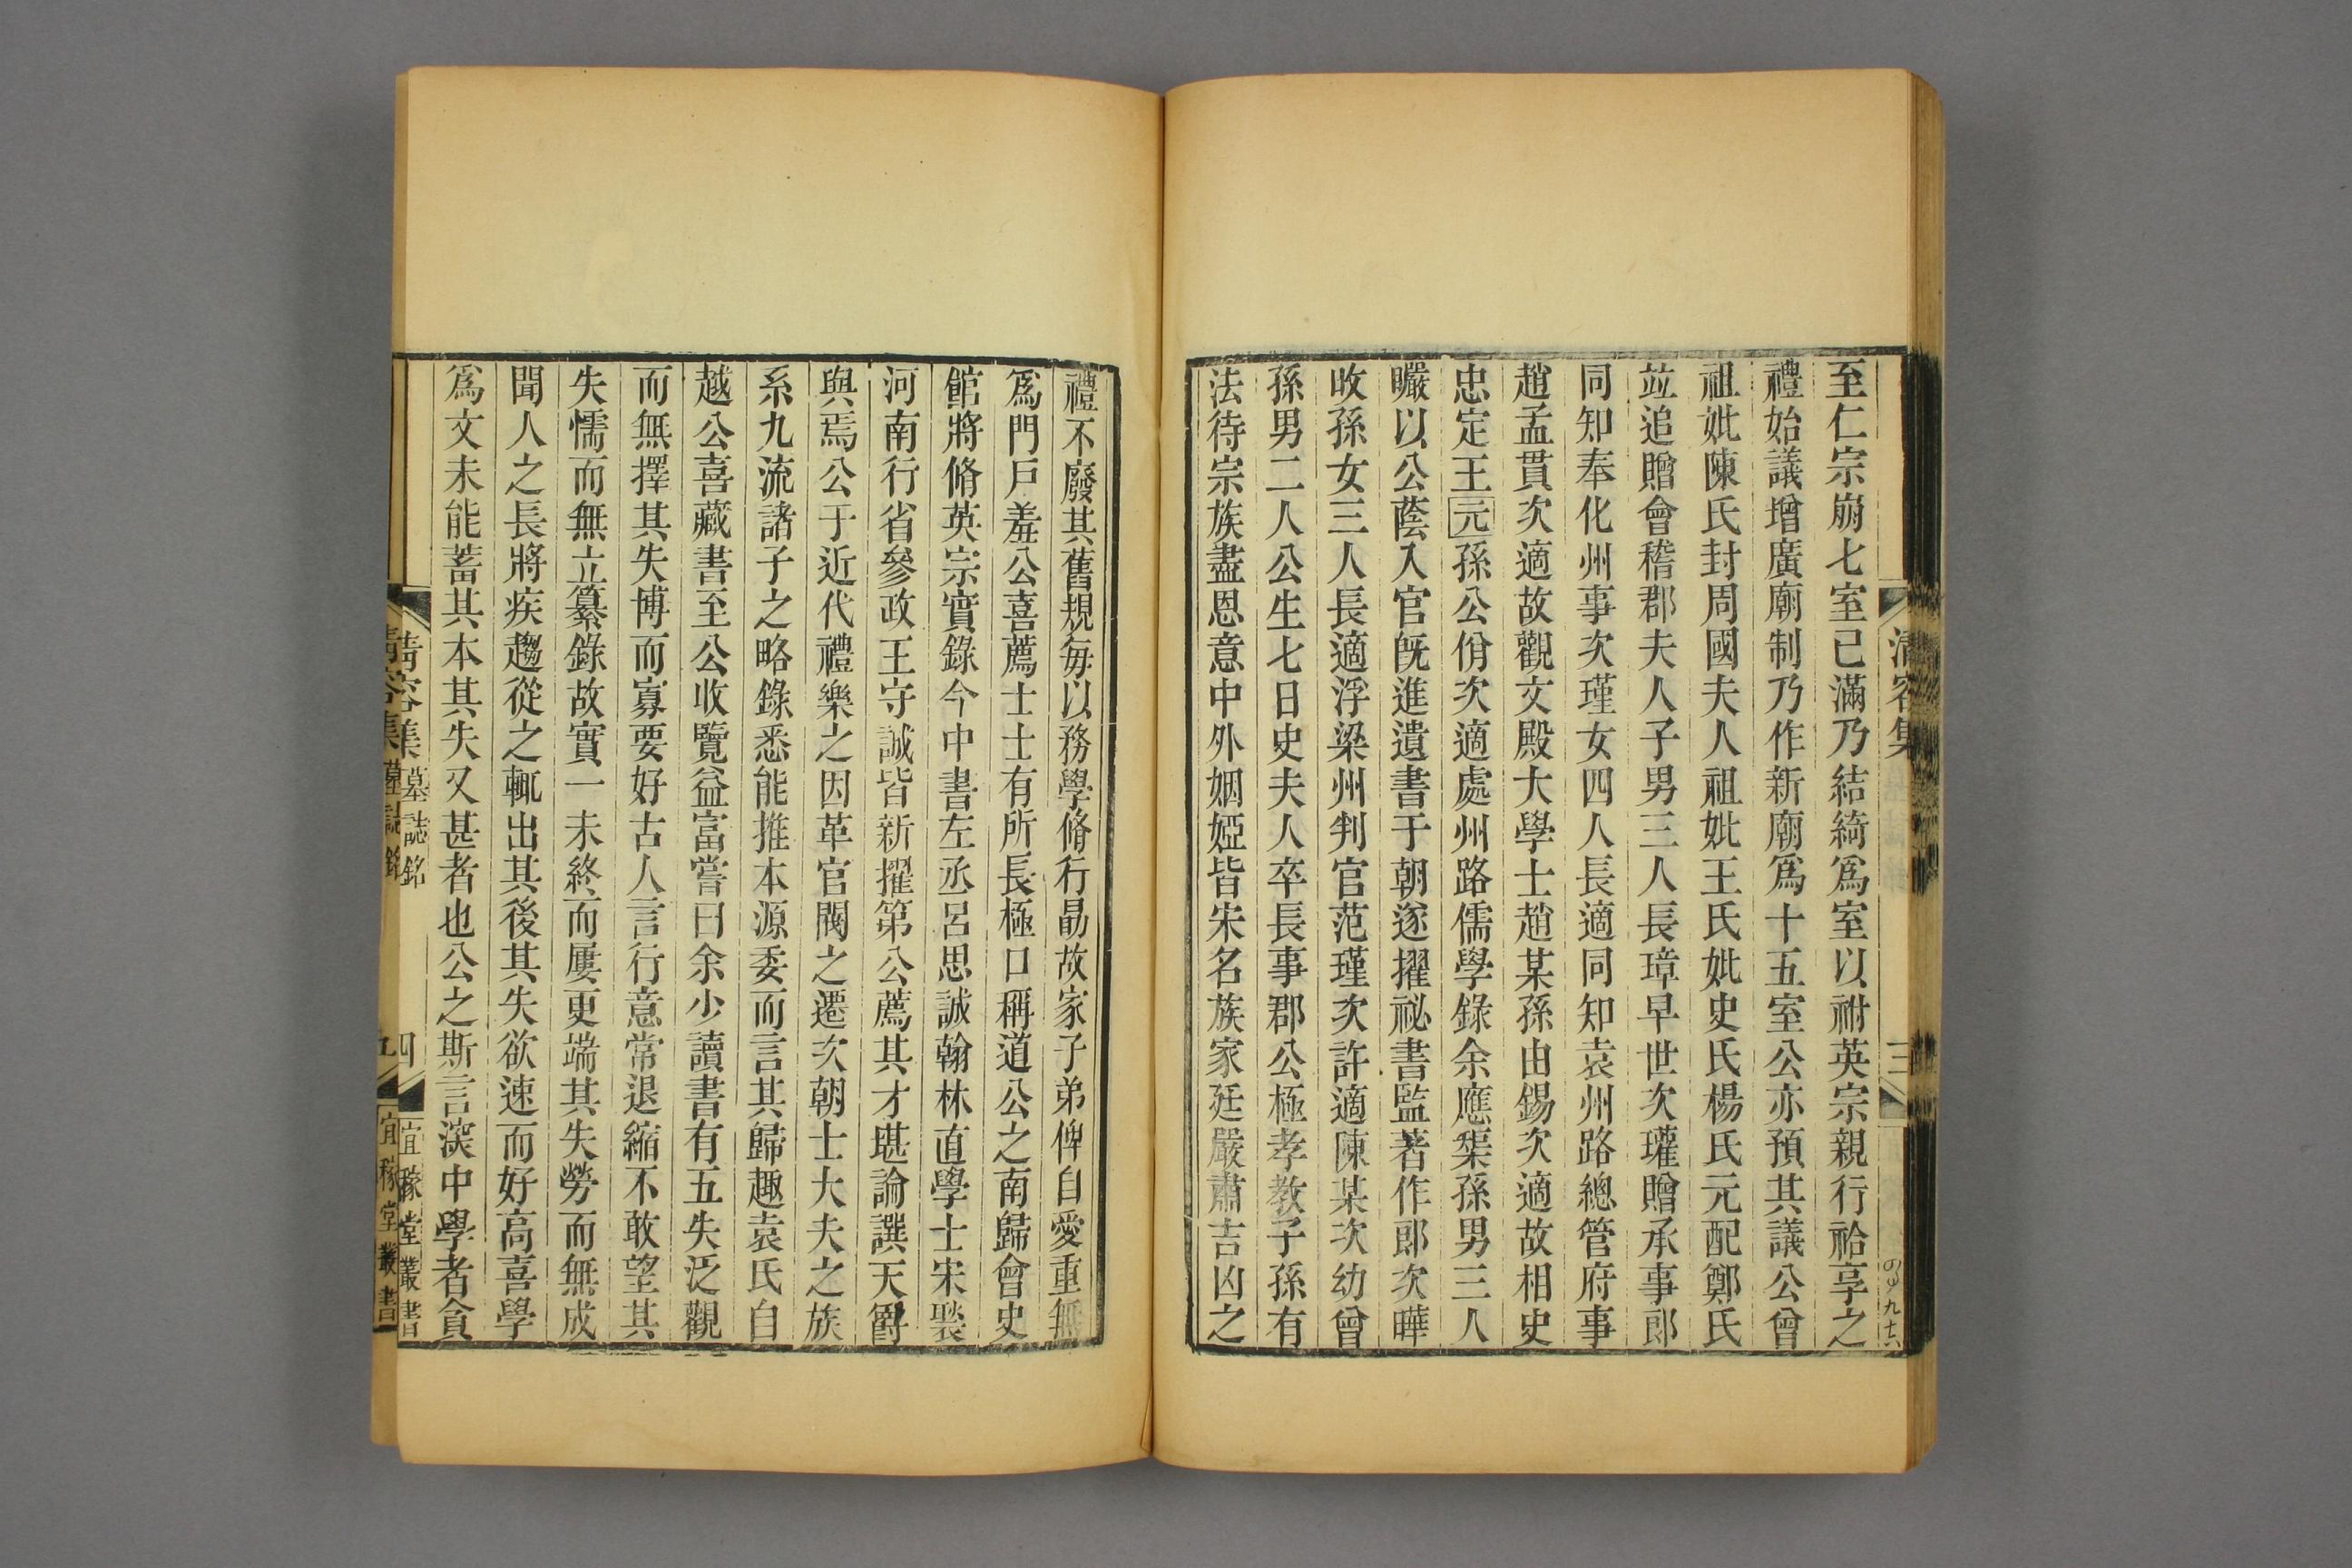 清容集
三
至仁宗崩七室已滿乃結綺爲室以祔英宗親行祫享之
禮始議增廣廟制乃作新廟爲十五室公亦預其議公曾
祖妣陳氏封周國夫人祖妣王氏妣史氏楊氏元配鄭氏
竝追贈會稽郡夫人子男三人長璋早世次瓘贈承事郎
同知奉化州事次瑾女四人長適同知袁州路總管府事
趙孟貫次適故觀文殿大學士趙某孫由錫次適故相史
忠定王元孫公佾次適處州路儒學錄余應榘孫男三人
曮以公蔭入官旣進遺書于朝遂擢祕書監著作郎次曄
㫤孫女三人長適浮梁州判官范瑾次許適陳某次幼曾
孫男二人公生七日史夫人卒長事郡公極孝教子孫有
法待宗族盡恩意中外姻婭皆宋名族家廷嚴肅吉凶之
禮不廢其舊規每以務學脩行勗故家子弟俾自愛重無
爲門戸羞公喜薦士士有所長極口稱道公之南歸會史
館將脩英宗實錄今中書左丞呂思誠翰林直學士宋褧
河南行省參政王守誠皆新擢第公薦其才堪論譔天爵
與焉公于近代禮樂之因革官閥之遷次朝士大夫之族
系九流諸子之略錄悉能推本源委而言其歸趣袁氏自
越公喜藏書至公收覽益富嘗曰余少讀書有五失泛觀
而無擇其失博而寡要好古人言行意常退縮不敢望其
失懦而無立纂錄故實一未終而屢更端其失勞而無成
聞人之長將疾趨從之輒出其後其失欲速而好高喜學
爲文未能蓄其本其失又甚者也公之斯言深中學者貪
清容集 墓誌銘
四
宜稼堂叢書